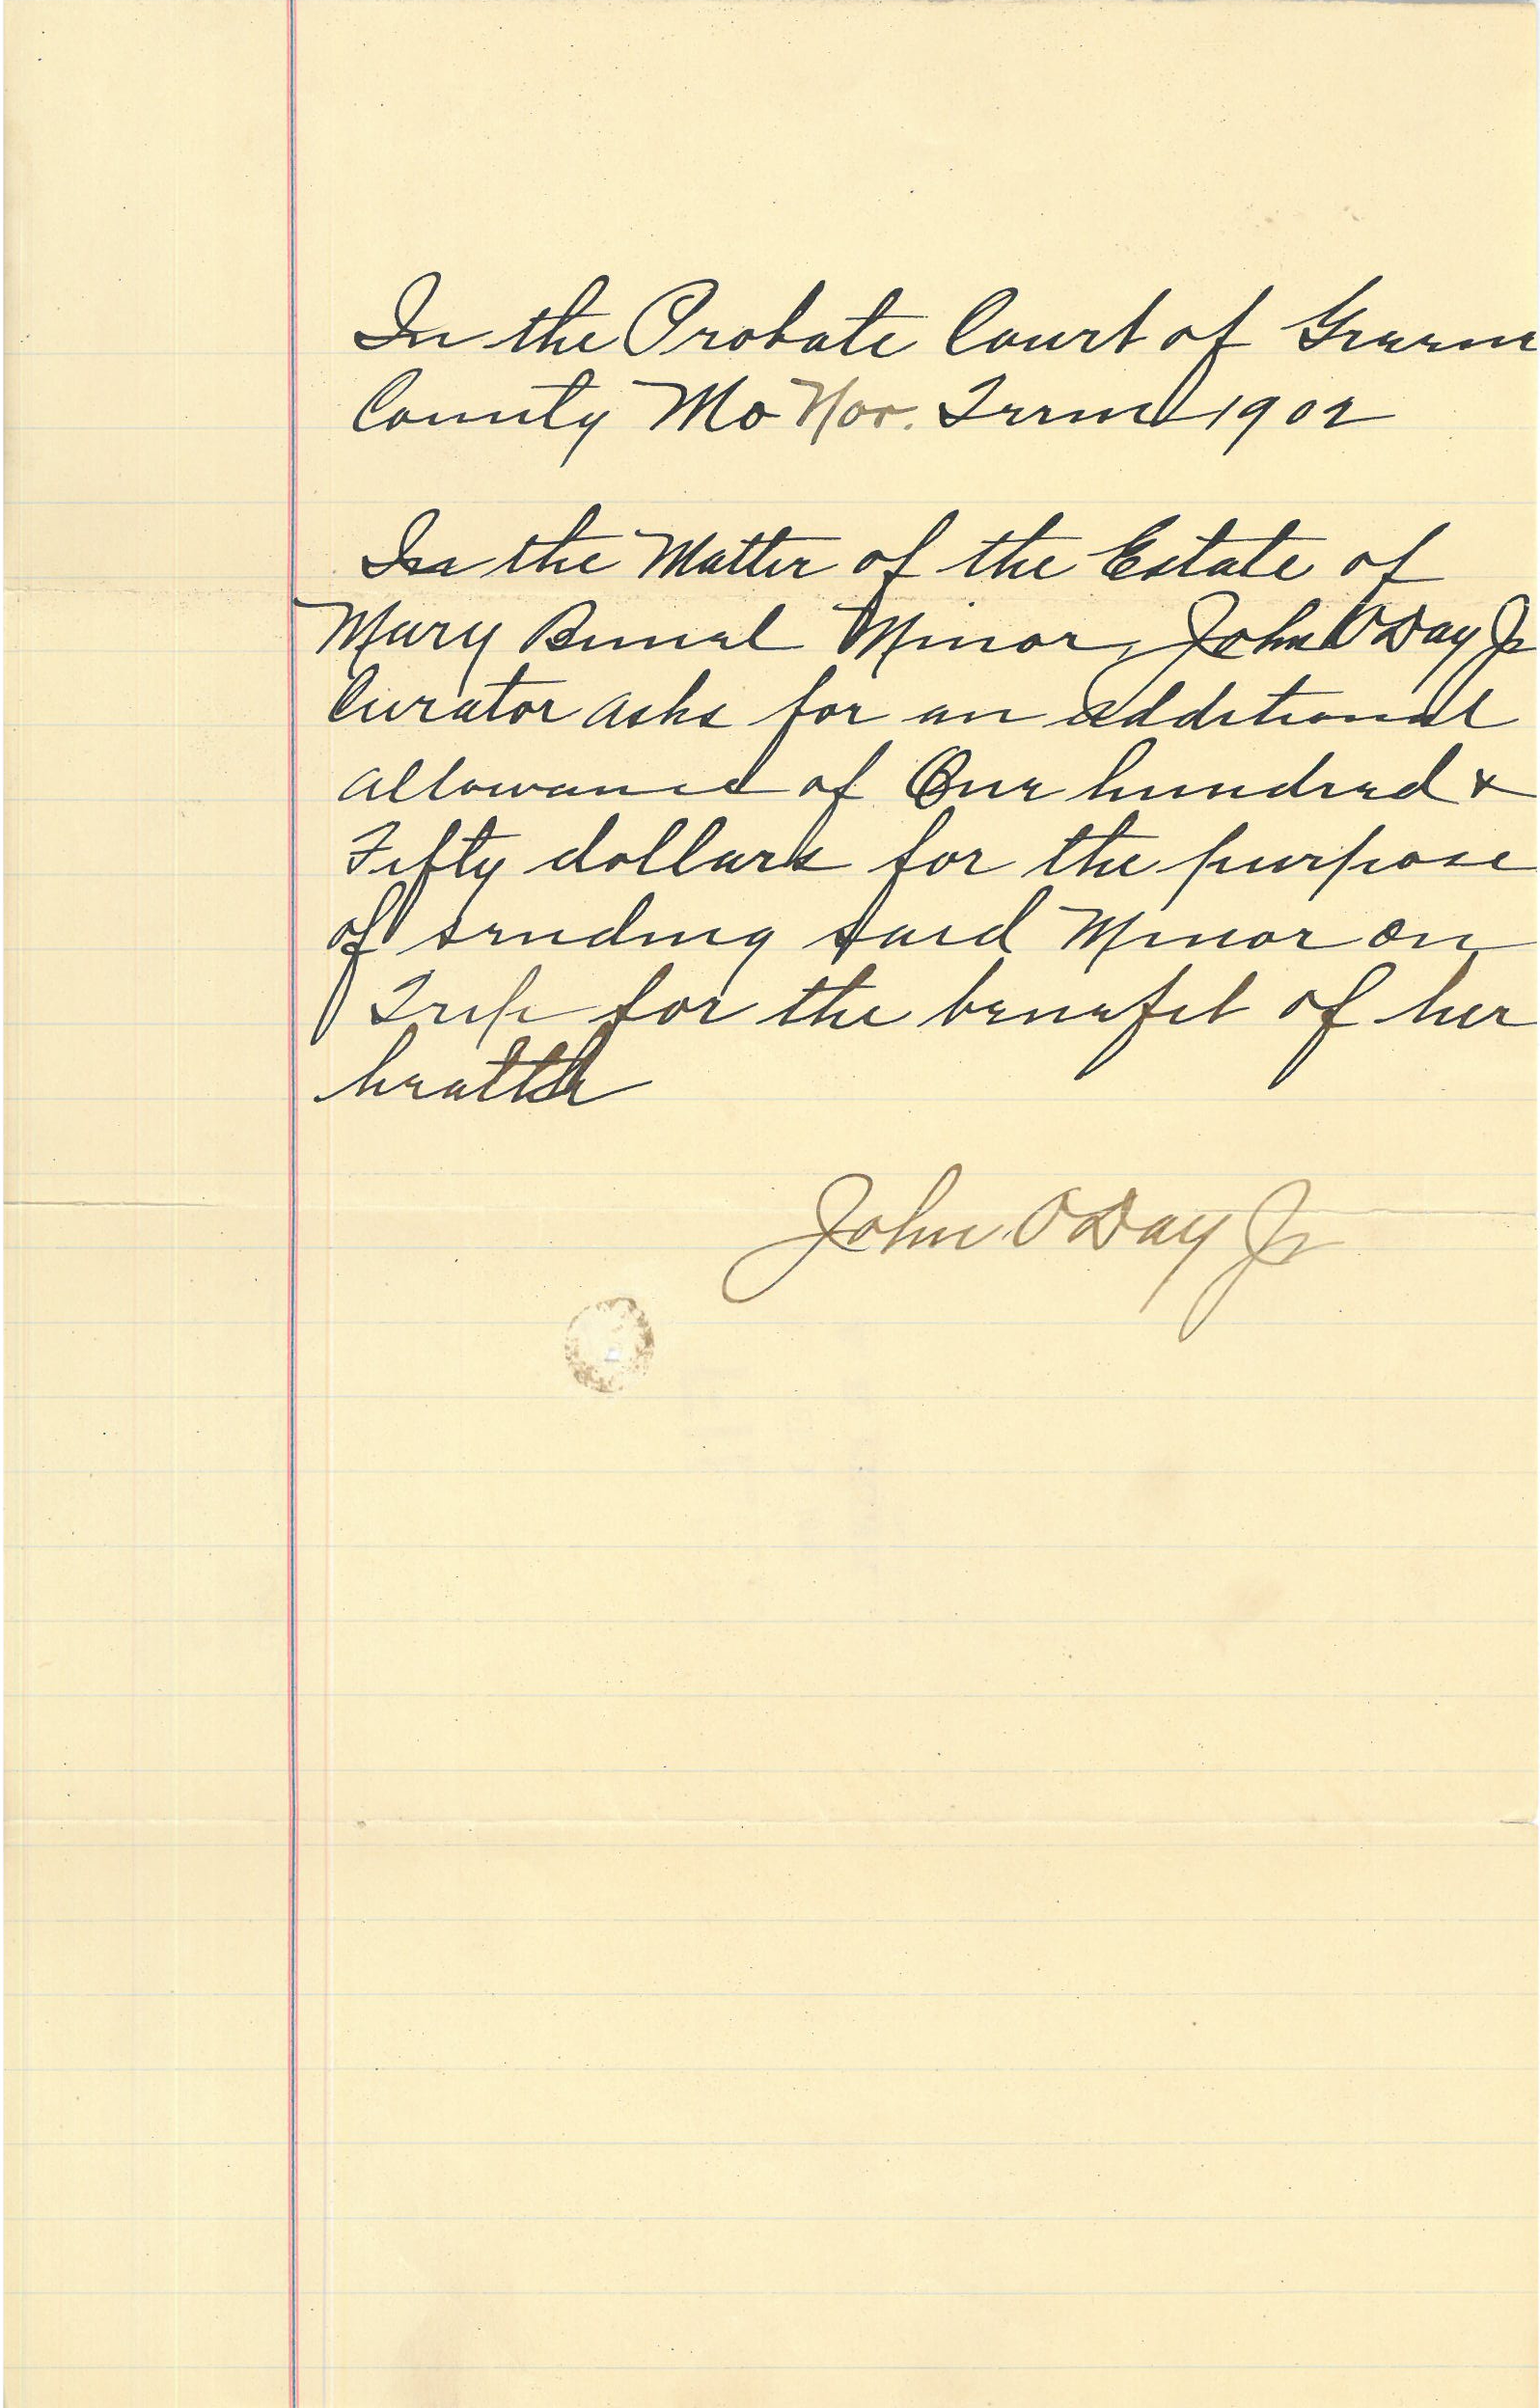 In the Probate Court of Greene
County Mo Nov. Term 1902
In the Matter of the Estate of
Mary Minor, John O'Day Jr
Curator asks for an additional
allowance of One hundred &
Fifty dollars for the purpose
of sending said Minor on
Trip for the benefit of her
health
John O'Day Jr